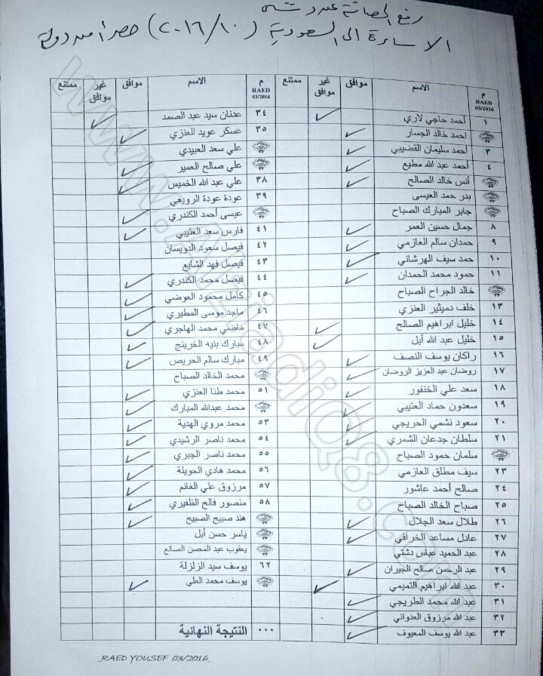 رفع الحصانة عن دشتي
الاساءة الى السعودية (٢٠١٦/١٠) حصر امن دولة
م RAED 03/2016 الاسم موافق غير موافق ممتنع
١ أحمد حاجي لاري
أحمد خالد الجسار
٣ أحمد سليمان القضيبي
٤ أحمد عبد الله مطيع
أنس خالد الصالح
بدر حمد العيسى
جابر المبارك الصباح
٨ جمال حسين العمر
٩ حمدان سالم العازمي
١٠ حمد سيف الهرشاني
١١ حمود محمد الحمدان
خالد الجراح الصباح
١٣ خلف دميثير العنزي
١٤ خليل ابراهيم الصالح
١٥ خليل عبد الله أبل
١٦ راكان يوسف النصف
١٧ روضان عبد العزيز الروضان
١٨ سعد علي الخنفور
١٩ سعدون حماد العتيبي
٢٠ سعود نشمي الحريجي
٢١ سلطان جدعان الشمري
سلمان حمود الصباح
٢٣ سيف مطلق العازمي
٢٤ صالح أحمد عاشور
٢٥ صباح الخالد الصباح
٢٦ طلال سعد الجلال
٢٧ عادل مساعد الخرافي
٢٨ عبد الحميد عباس دشتي
٢٩ عبد الرحمن صالح الجيران
٣٠ عبد الله ابراهيم التميمي
٣١ عبد الله محمد الطريجي
٣٢ عبد الله مرزوق العدواني
٣٣ عبد الله يوسف المعيوف
م RAED 03/2016 الاسم موافق غير موافق ممتنع
٣٤ عدنان سيد عبد الصمد
٣٥ عسكر عويد العنزي
علي سعد العبيدي
علي صالح العمير
٣٨ علي عبد الله الخميس
٣٩ عودة عودة الرويعي
عيسى أحمد الكندري
٤١ فارس سعد العتيبي
٤٢ فيصل سعود الدويسان
٤٣ فيصل فهد الشايع
٤٤ فيصل محمد الكندري
٤٥ كامل محمود العوضي
٤٦ ماجد موسى المطيري
٤٧ ماضي محمد الهاجري
٤٨ مبارك بنيه الخرينج
٤٩ مبارك سالم الحريص
محمد الخالد الصباح
٥١ محمد طنا العنزي
محمد عبدالله المبارك
٥٣ محمد مروي الهدية
٥٤ محمد ناصر الرشيدي
٥٥ محمد ناصر الجبري
٥٦ محمد هادي الحويلة
٥٧ مرزوق علي الغانم
٥٨ منصور فالح الظفيري
هند صبيح الصبيح
ياسر حسن أبل
يعقوب عبد المحسن الصانع
٦٢ يوسف سيد الزلزلة
يوسف محمد العلي
٠٠٠ النتيجة النهائية
RAED YOUSEF 03/2016